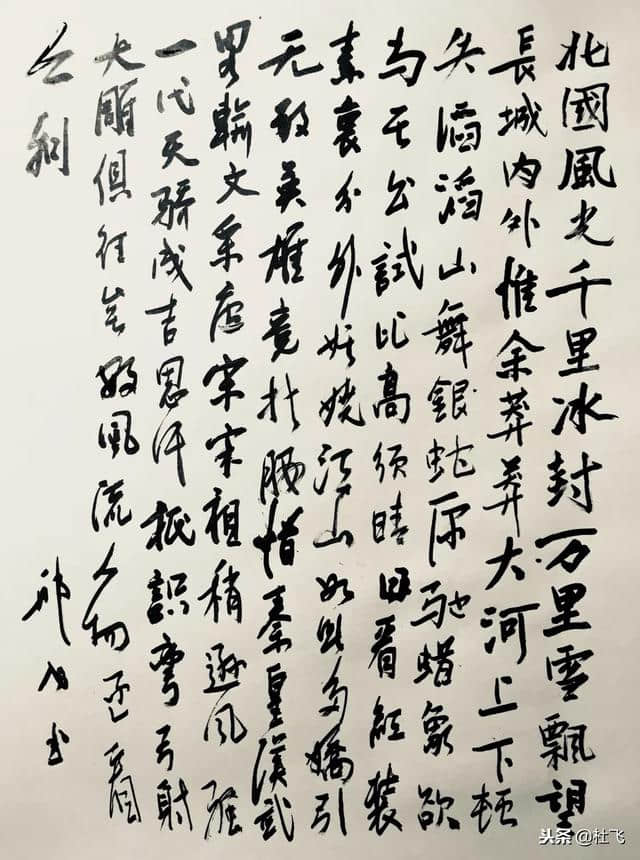 北國風光千里冰封万里雪飄望
長城内外惟余莽莽大河上下頓
失滔滔山舞銀蛇原馳蜡象欲
与天公試比高须晴日看红装
素裹分外妖娆江山如此多嬌引
无数英雄竞折腰惜秦皇漢武
畧輸文采唐宗宋祖稍遜风骚
一代天骄成吉思汗祗識彎弓射
大雕俱往矣数風流人物还看
今朝
书
头条 @杜飞